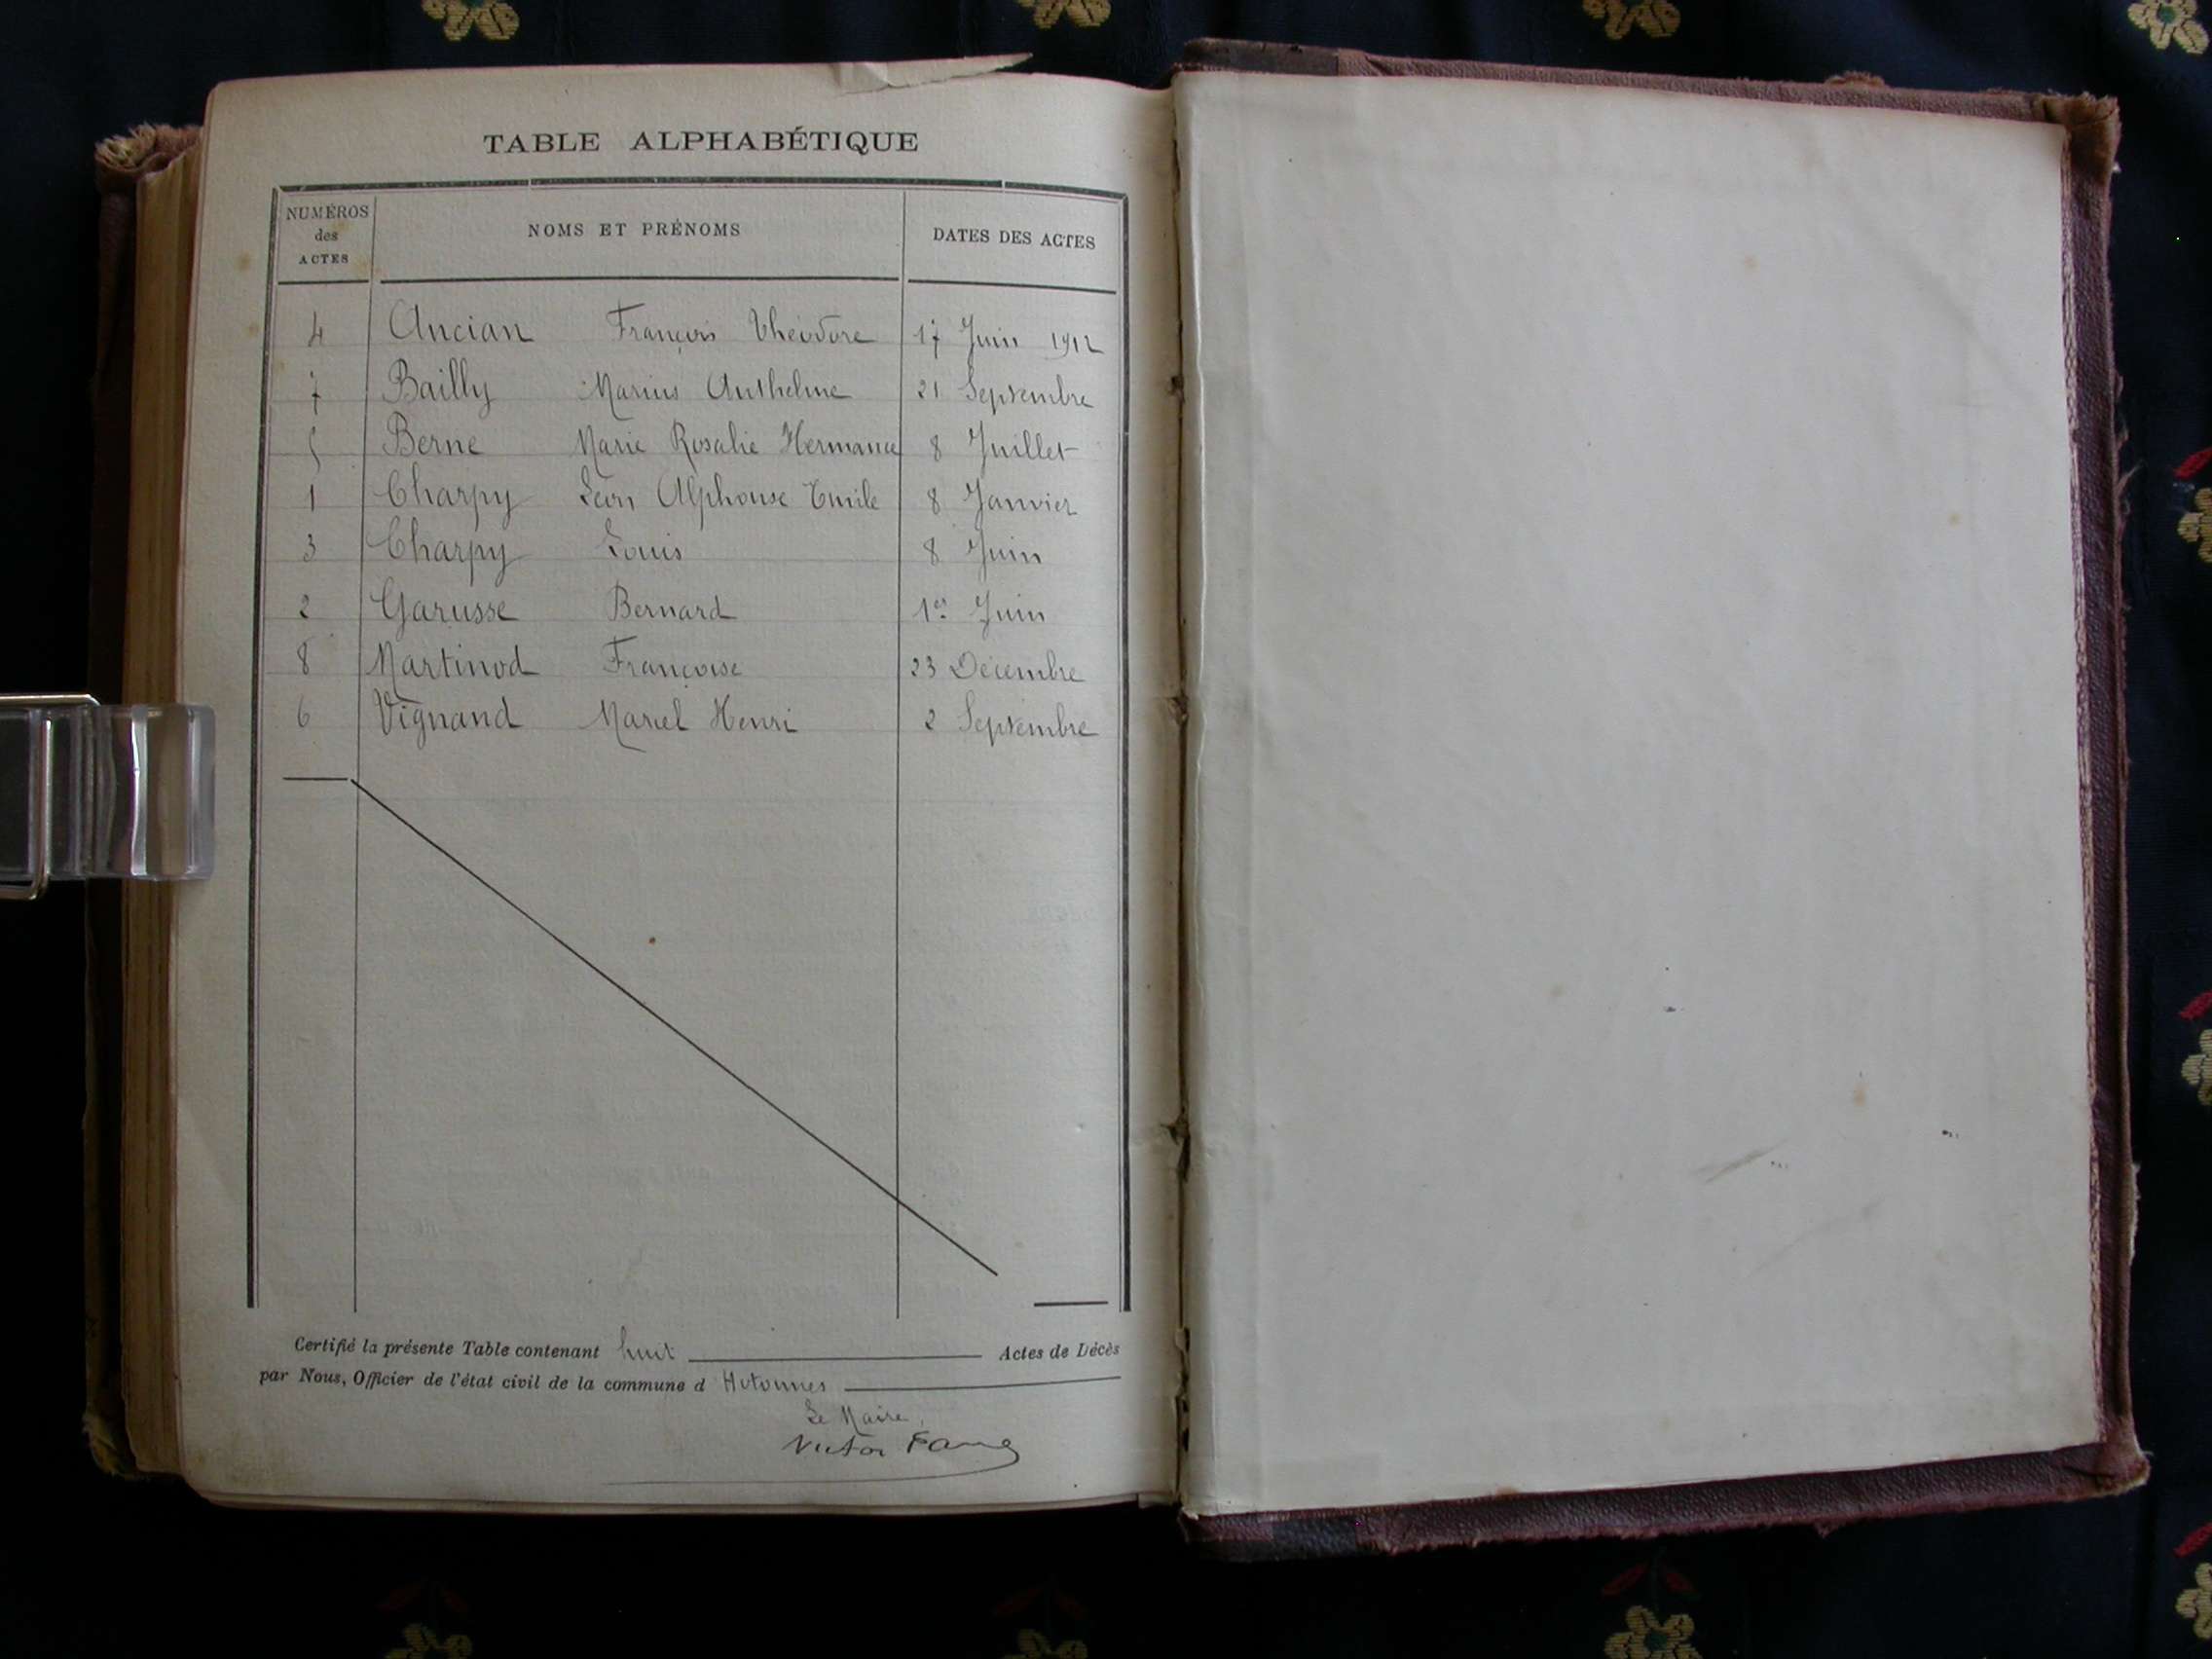 TABLE ALPHABÉTIQUE
NUMÉROS des ACTES NOMS ET PRÉNOMS DATES DES ACTES
4 Ancian François Théodore 17 Juin 1912
7 Bailly Marius Anthelme 21 Septembre
5 Berne Marie Rosalie Hermance 8 Juillet
1 Charpy Léon Alphonse Emile 8 Janvier
3 Charpy Louis 8 Juin
2 Garusse Bernard 1er Juin
8 Martinod Françoise 23 Décembre
6 Vignand Marcel Henri 2 Septembre
Certifié la présente Table contenant huit Actes de Décès
par Nous, Officier de l'état civil de la commune d Hotonnes
Le Maire,
Victor